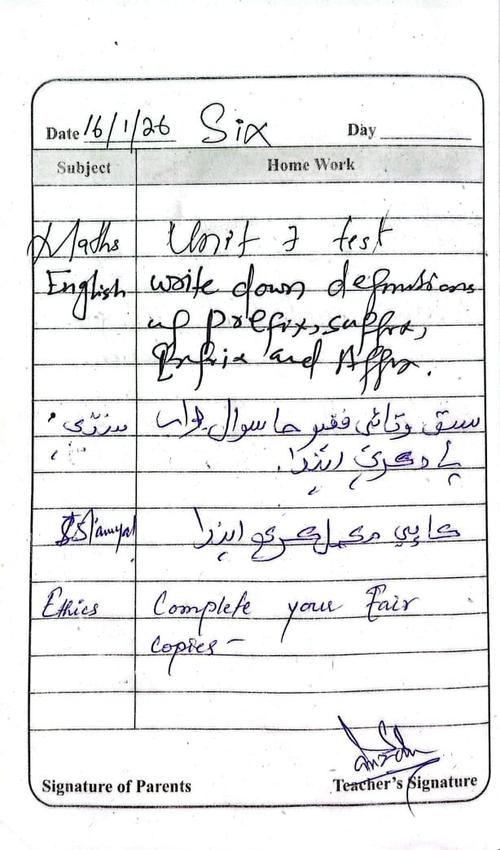 Date 16/1/26 Six Day
Subject Home Work
Maths Unit 7 test
English write down definitions
of prefix, suffix,
Infix and Affix.
سنڌي سبق وتائي فقير جا سوال جواب
ياد ڪري ايندا.
Islamyat ڪاپي مڪمل ڪري ايندا
Ethics Complete your Fair
copies -
Signature of Parents Teacher's Signature